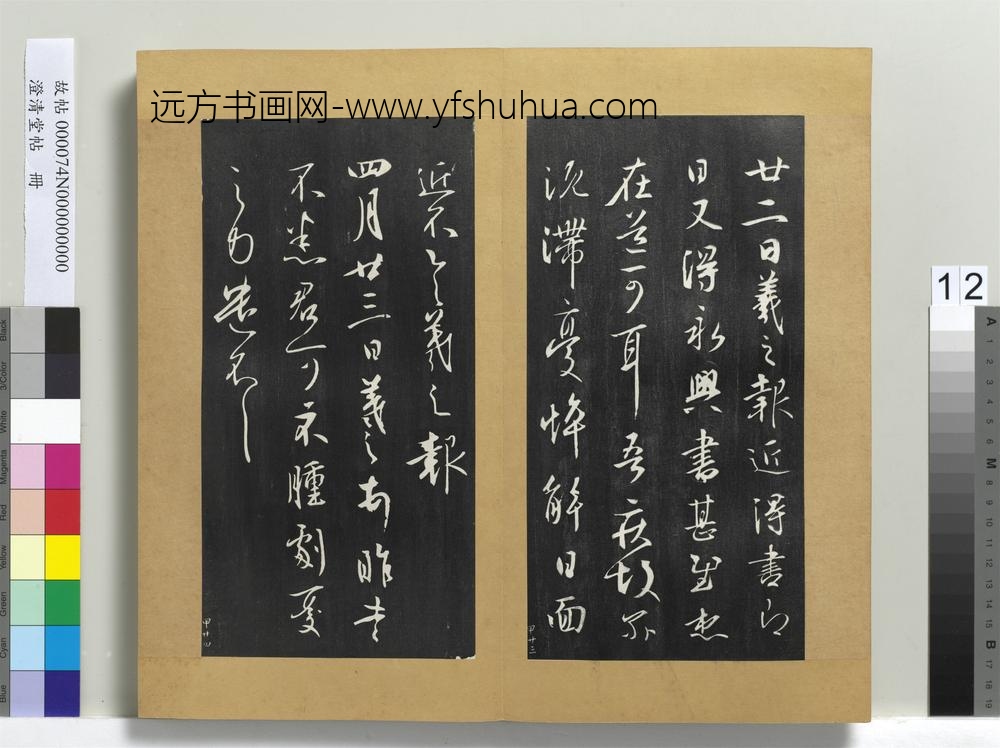 远方书画网-www.yfshuhua.com
故帖 000074N000000000
澄清堂帖 冊
廿二日羲之報近得書即
日又得永興書甚慰想
在道可耳吾疾故爾
沉滯憂悴解日面
甲廿三
近不具羲之報
四月廿三日羲之昨書
不悉君可不腫劇憂
之力遣不一一
甲廿四
12
Black
3/Color
White
Magenta
Red
Yellow
Green
Cyan
Blue
A
1
2
3
4
5
6
M
8
9
10
11
12
13
14
15
B
17
18
19